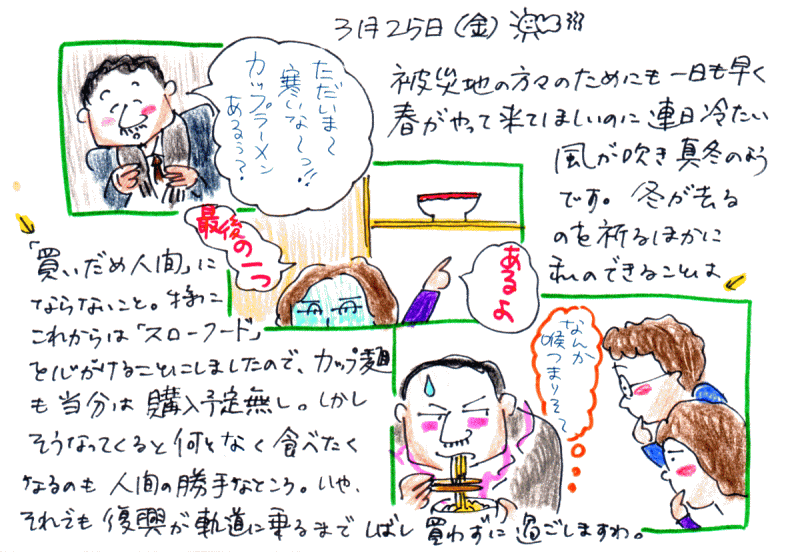 3月25日(金)
ただいま〜
寒いな〜っ!!
カップラーメン
あるぅ?
被災地の方々のためにも一日も早く
春がやって来てほしいのに連日冷たい
風が吹き真冬のよう
です。冬が去る
のを祈るほかに
私のできることは
最後の一つ
あるよ
「買いだめ人間」に
ならないこと。特に
これからは「スローフード」
を心がけることにしましたので、カップ麺
も当分は購入予定無し。しかし
そうなってくると何となく食べたく
なるのも人間の勝手なところ。いや、
それでも復興が軌道に乗るまでしばし買わずに過ごしますわ。
なんか
喉つまりそで